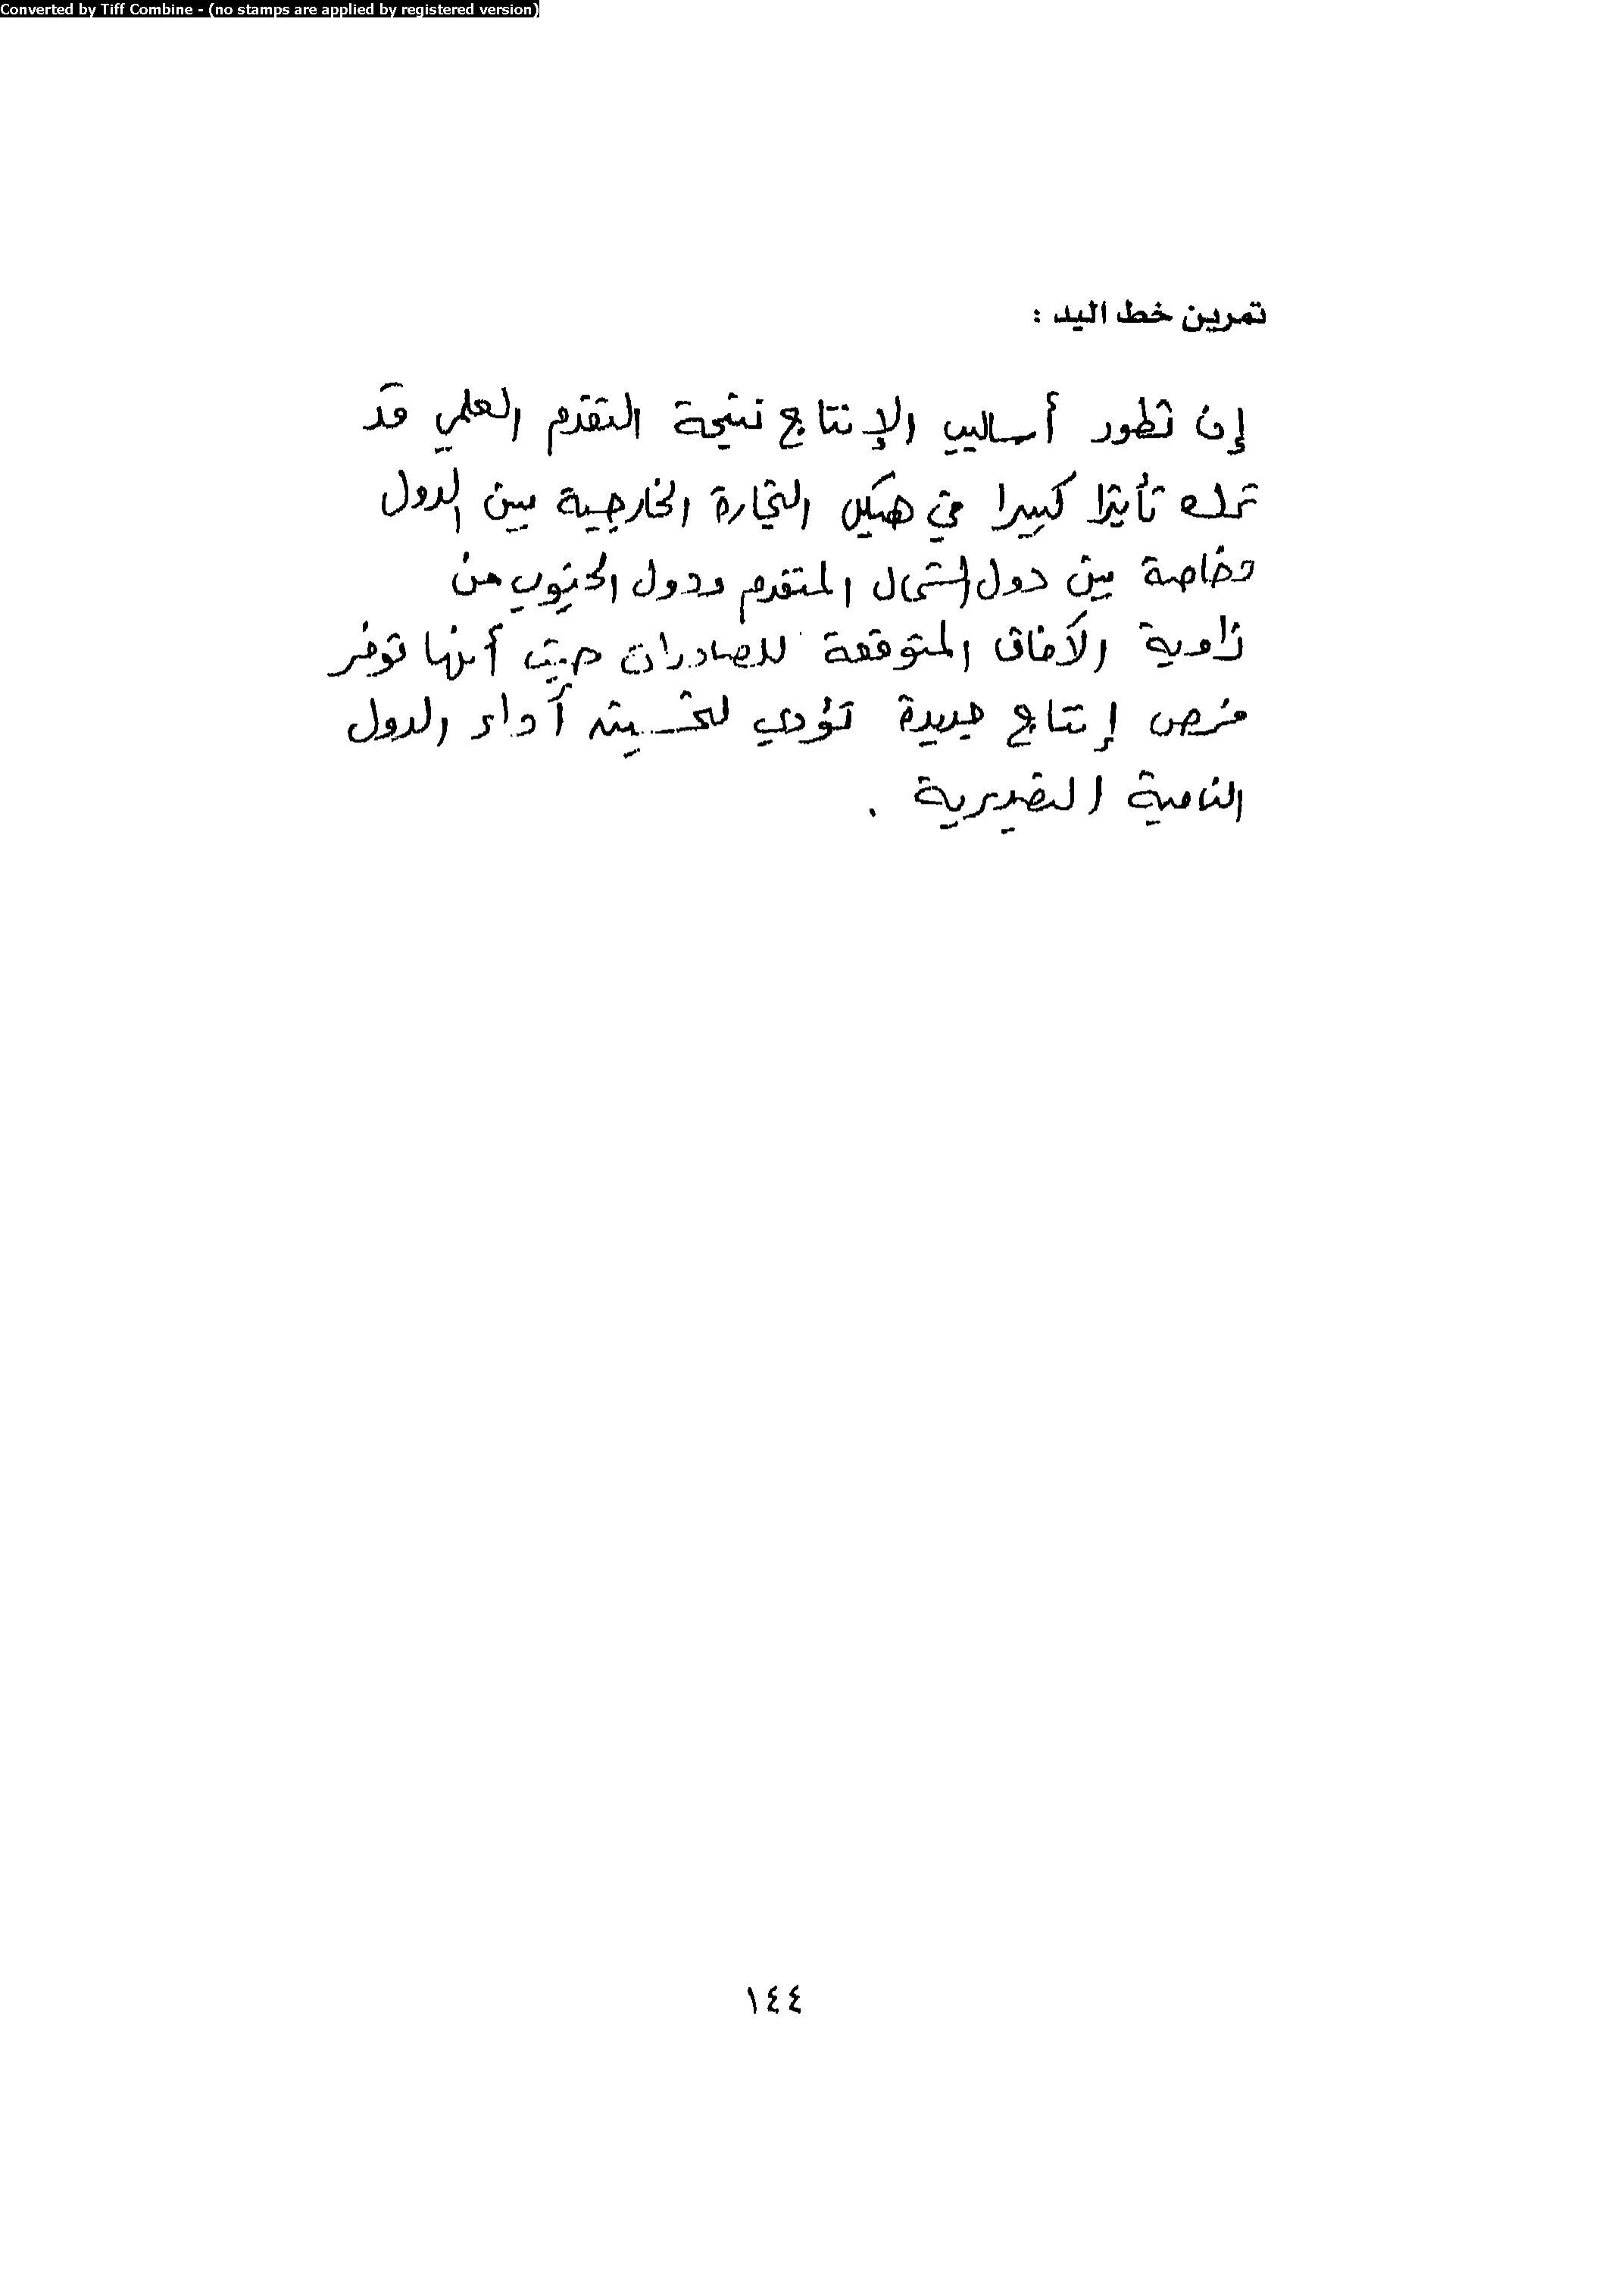 Converted by Tiff Combine - (no stamps are applied by registered version)
تمرين خط اليد :
إن تطور أساليب الإنتاج نتيجة التقدم العلمي قد
ترك تأثيرا كبيرا في هيكل التجارة الخارجية بين الدول
وخاصة بين دول الشمال المتقدم ودول الجنوب من
زاوية الآفاق المتوقعة للصادرات حيث أنها توفر
فرص إنتاج جديدة تؤدي لتحسين آداء الدول
النامية التصديرية .
١٤٤